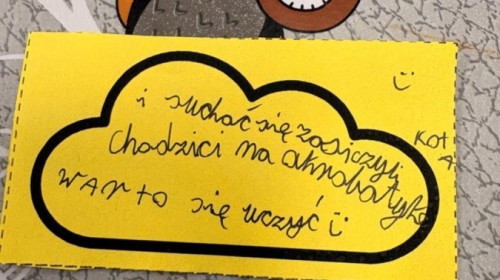 i suchać się
chodzici na akrobatykę
warto się uczyć
Kot
A